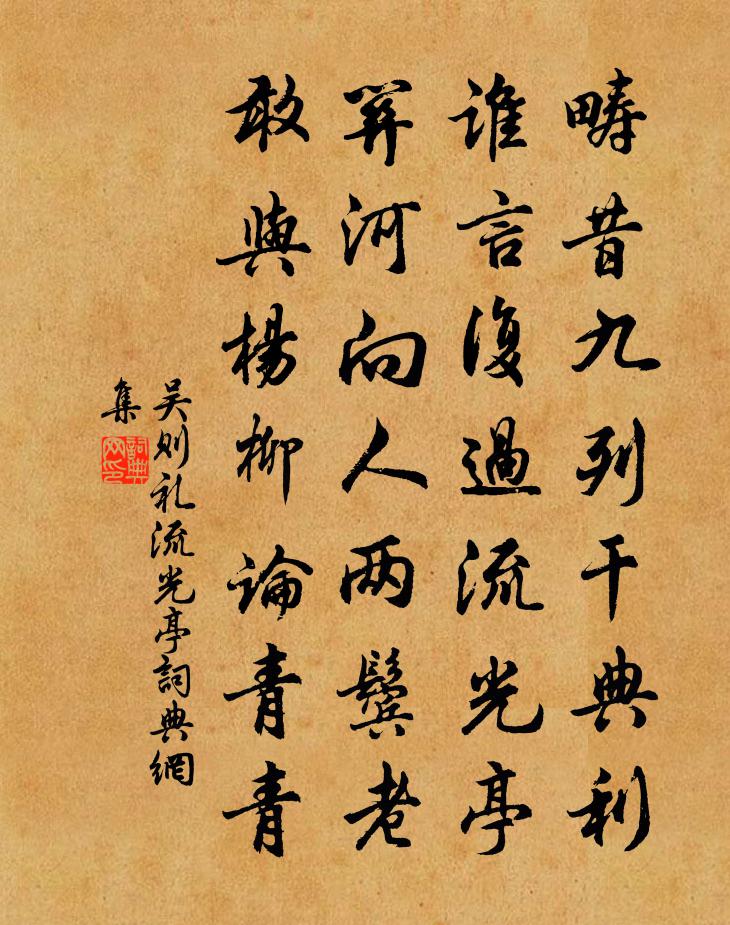 疇昔九列干典利
誰言復過流光亭
关河向人两鬓老
敢與楊柳論青青
吴则礼流光亭詞典網
集
詞典
网印